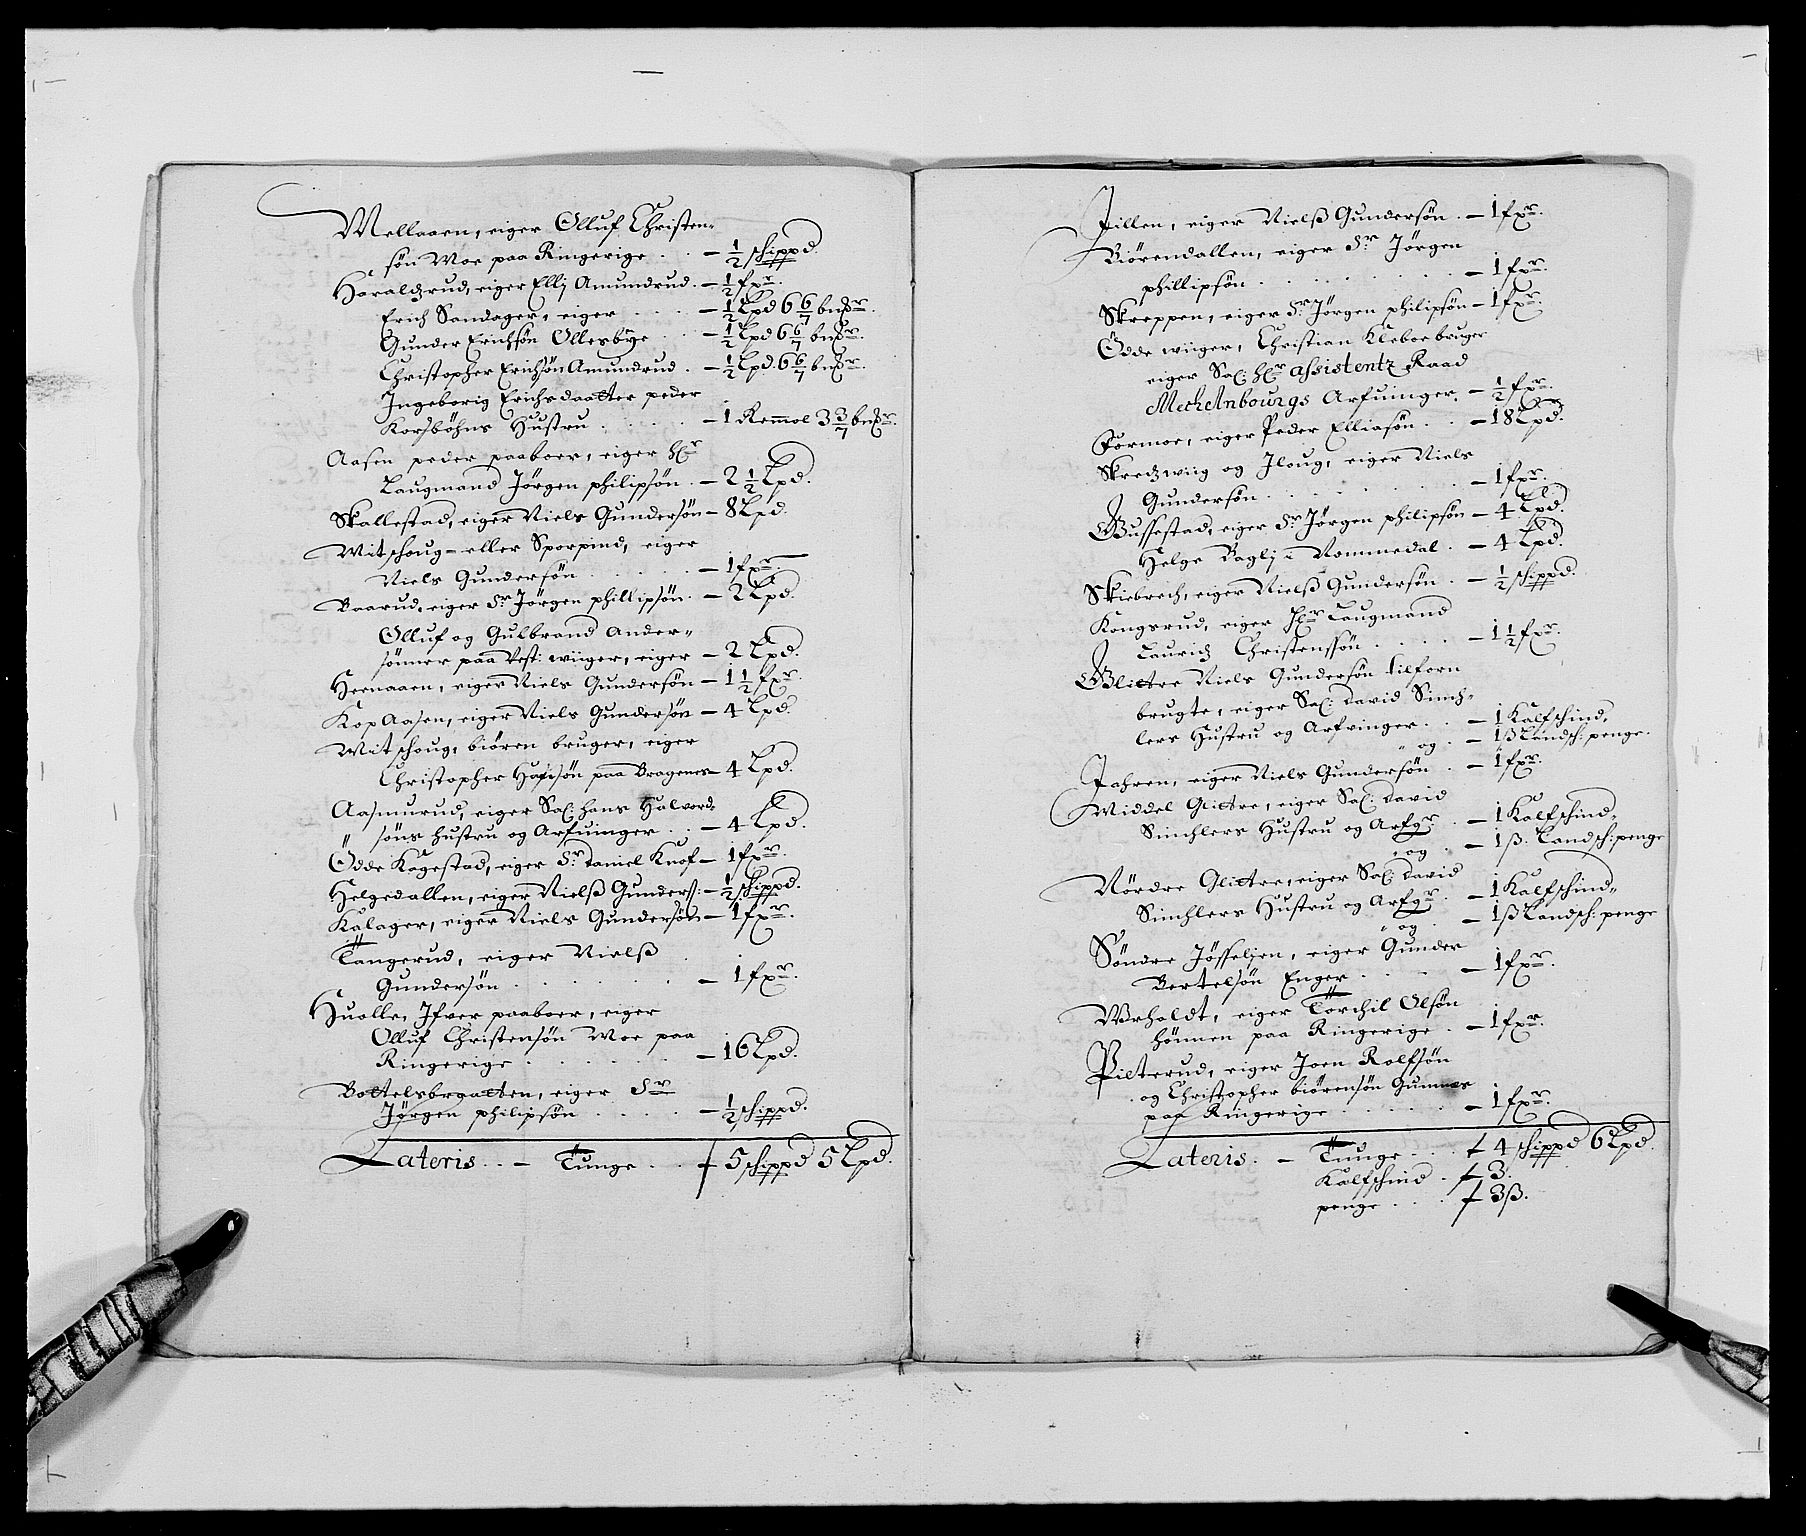 Mellaaen, eiger Olluf Christen-
søn Moe paa Ringerige . . — ½ schippd.
Haraldzrud, eiger Ellj Amundrud. — ½ fxr.
Erich Sandager, eiger . . . — ½ Lpd 6 6/7 bmßr.
Gunder Erichsøn Ollesbye . . — ½ Lpd 6 6/7 bmßr.
Christopher Erichsøn Amundrud . — ½ Lpd. 6 6/7 bmßr.
Ingeborig Erichsdaatter peder
Korsbøhns Hustru . . . . — 1 Remol 3 3/7 bmßr.
Aasen peder paaboer, eiger Hr
Laugmand Jørgen philipsøn . — 2 ½ Lpd.
Skallestad, eiger Niels Gundersøn — 8 Lpd.
Witschoug - eller Sporpind, eiger
Niels Gundersøn . . . . . — 1 fxr.
Baarud, eiger Sr Jørgen phillipsøn . — 2 Lpd.
Olluf og Gulbrand Ander-
sønner paa Vest: wiiger, eiger — 2 Lpd.
Hernaaen, eiger Niels Gundersøn — 1 ½ fxr.
Kop Aasen, eiger Niels Gundersøn — 4 Lpd.
Witschoug, biøren bruger, eiger
Christopher Hansøn paa Bragenes — 4 Lpd.
Aasmurud, eiger Sal: Hans Halvord-
søns Hustru og Arfuinger . . — 4 Lpd.
Odde Kagestad, eiger Sr Daniel Knof — 1 fxr.
Helgedallen, eiger Nielß Gunderß: — ½ schippd.
Kalager, eiger Niels Gundersøn — 1 fxr.
Tangerud, eiger Nielß
Gundersøn . . . . . . . — 1 fxr.
Hualle, Ifver paaboer, eiger
Olluf Christensøn Moe paa
Ringerige . . . . . . — 16 Lpd.
Bottelsbraatten, eiger Sr
Jørgen philipsøn . . . . — ½ schippd.
Lateris . . — Tunge . . 5 schippd 5 Lpd.
Jillen, eiger Nielß Gundersøn . — 1 fxr.
Biørendallen, eiger Sr Jørgen
phillipsøn . . . . . . . — 1 fxr.
Skreppen, eiger Sr Jørgen philipsøn — 1 fxr.
Odde wiiger, Christian Kleboe bruger
eiger Sal: Hr assistentz Raad
Mechelnbourgs Arfuinger. — ½ fxr.
Formoe, eiger Peder Elliasøn . . — 18 Lpd.
Skredzwiig og Iloug, eiger Niels
Gundersøn . . . . . . . — 1 fxr.
Gussestad, eiger Sr Jørgen philipsøn — 4 Lpd.
Helge Baglj i Nommedal . — 4 Lpd.
Skiebrech, eiger Nielß Gundersøn . — ½ schippd.
Kongsrud, eiger Hr Laugmand
Lauridz Christenssøn . . . . — 1 ½ fxr.
Glittre Niels Gundersøn tilforn
brugte, eiger Sal: David Simch-
lers Hustru og Arfvinger . . — 1 Kalfschind,
og . — 1 ß Landsch: penge.
Jahren, eiger Niels Gundersøn . — 1 fxr.
Middel Glittre, eiger Sal: David
Simchlers Hustru og Arfgr . — 1 Kalfschind-
og — 1 ß. Landsch: penge
Nørdre Glittre, eiger Sal: David
Simchlers Hustru og Arfgr . — 1 Kalfschind-
og . — 1 ß Landsch: penge
Søndre Jøsseljen, eiger Gunder
Bertelsøn Enger . . . . . — 1 fxr.
Wrholdt, eiger Torchil Olsøn
Hønnen paa Ringerige . — 1 fxr.
Pilterud, eiger Joen Rolfsøn
og Christopher biørensøn Gumnes
paa Ringerige . . . . . — 1 fxr.
Lateris . — Tunge . . . 4 schippd 6 Lpd.
Kalfschind . 3.
penge . . . 3 ß.